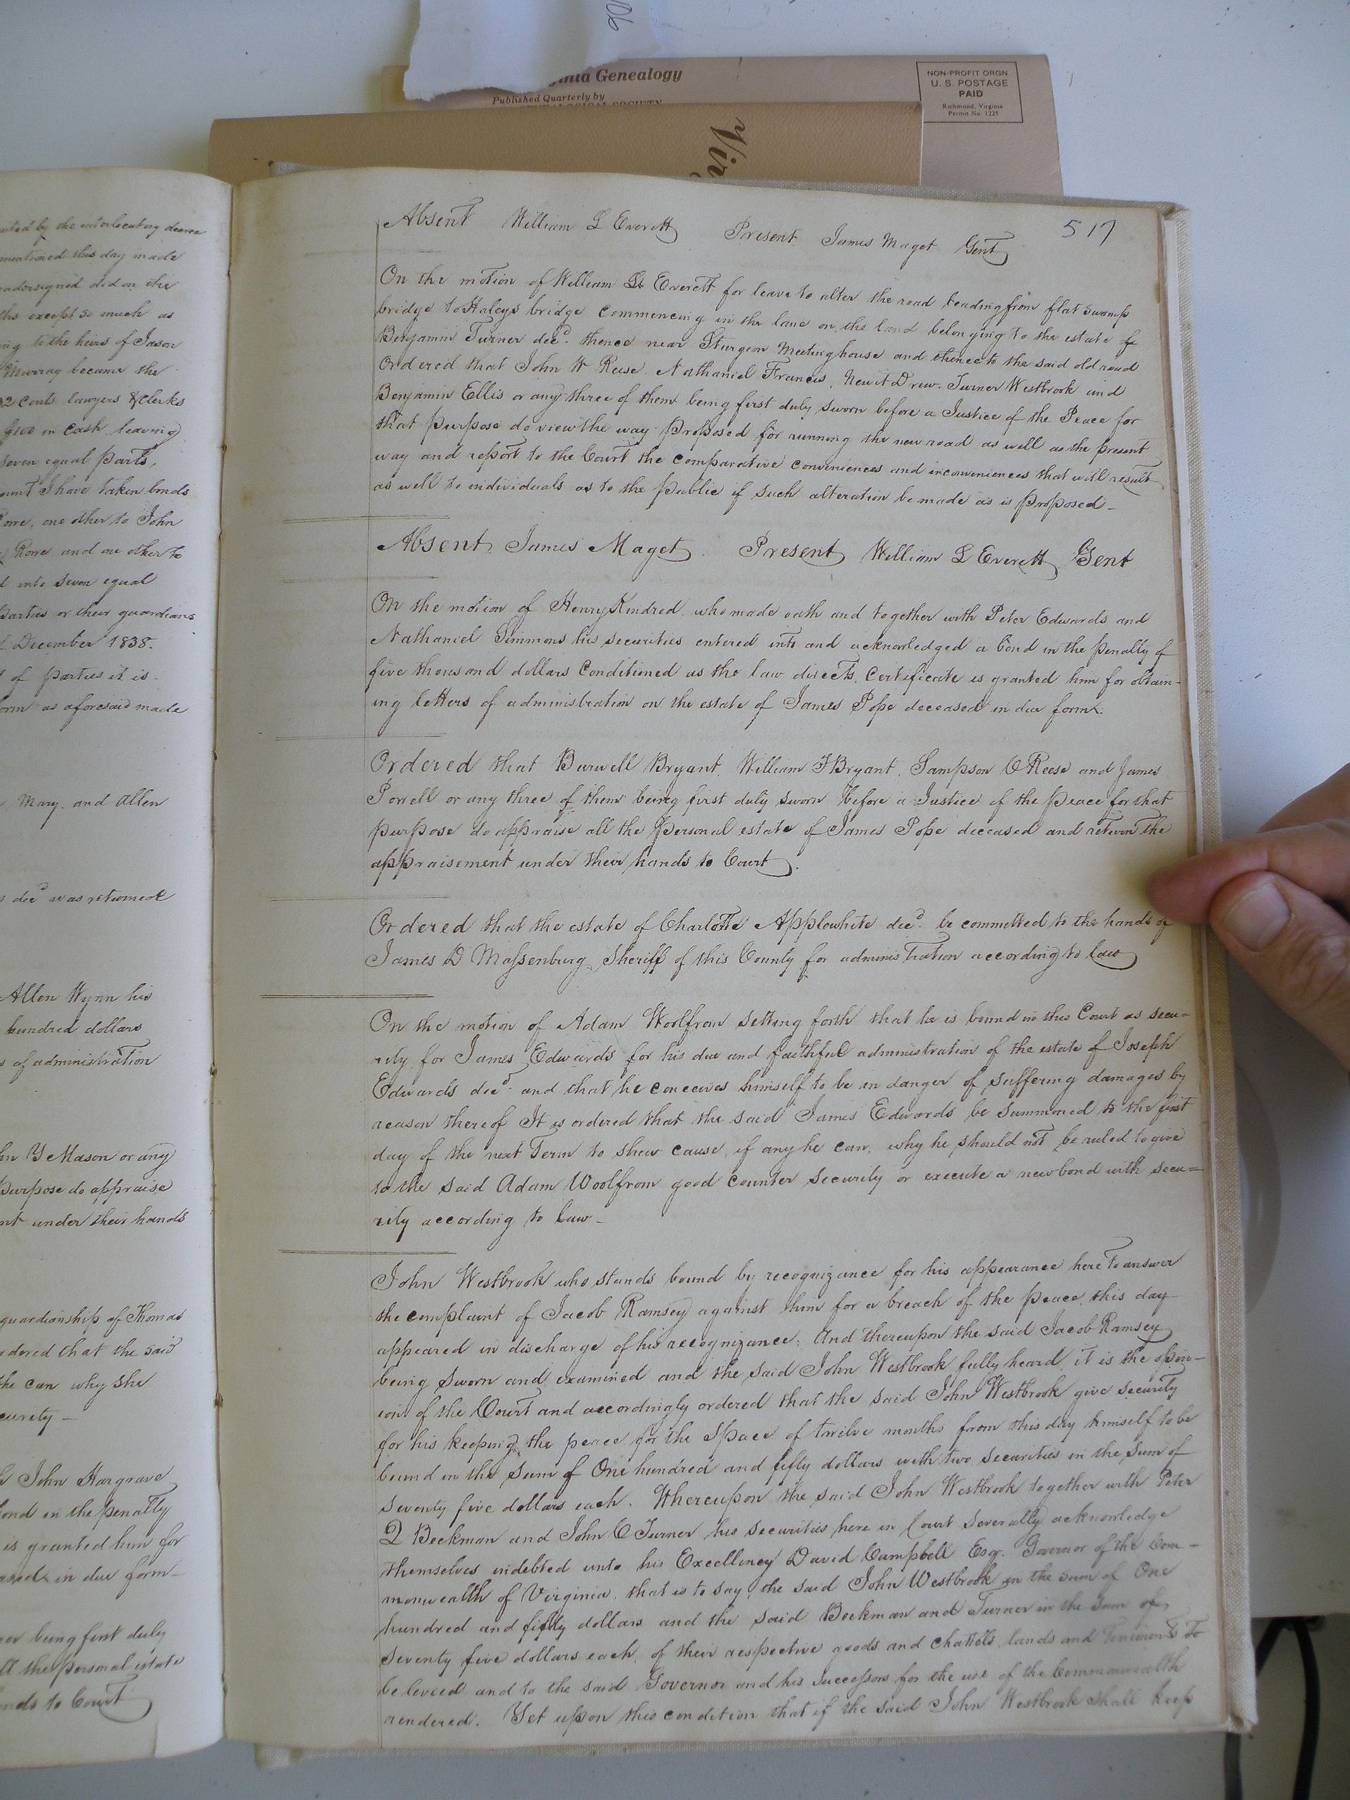 Virginia Genealogy
Published Quarterly by
NON-PROFIT ORGN
U. S. POSTAGE
PAID
Richmond, Virginia
Permit No. 1225
Vir
by the interlocutory decree
this day made
undersigned did on the
except so much as
to the heirs of Jason
Murray became the
cents lawyers & Clerks
in Cash leaving
seven equal parts,
I have taken bonds
one other to John
and one other to
into seven equal
parties or their guardians
December 1838.
of parties it is
as aforesaid made
Mary and Allen
decd was returned
Allen Wynn his
hundred dollars
of administration
Y Mason or any
purpose do appraise
under their hands
guardianship of Thomas
ordered that the said
she can why she
security —
John Hargrave
bond in the penalty
is granted him for
in due form —
being first duly
all the personal estate
hands to Court
517
Absent William L Everett Present James Maget Gent
On the motion of William L Everett for leave to alter the road leading from flat swamp
bridge to Haleys bridge commencing in the lane on the land belonging to the estate of
Benjamin Turner decd. thence near Sturgeon Meeting house and thence to the said old road
Ordered that John W Reese, Nathaniel Francis, Newit Drew, Turner Westbrook and
Benjamin Ellis or any three of them being first duly sworn before a Justice of the Peace for
that purpose do view the way proposed for running the new road as well as the present
way and report to the Court the comparative conveniences and inconveniences that will result
as well to individuals as to the public if such alteration be made as is proposed —
Absent James Maget. Present William L Everett Gent
On the motion of Henry Kindred who made oath and together with Peter Edwards and
Nathaniel Simmons his securities entered into and acknowledged a bond in the penalty of
five thousand dollars Conditioned as the law directs, Certificate is granted him for obtain-
ing letters of administration on the estate of James Pope deceased in due form.
Ordered that Burwell Bryant, William F Bryant, Sampson C Reese and James
Powell or any three of them being first duly sworn before a Justice of the peace for that
purpose do appraise all the personal estate of James Pope deceased and return the
appraisement under their hands to Court.
Ordered that the estate of Charlotte Applewhite decd. be committed to the hands of
James D Massenburg Sheriff of this County for administration according to law
On the motion of Adam Woolfrom setting forth that he is bound in this Court as secu-
rity for James Edwards for his due and faithful administration of the estate of Joseph
Edwards decd. and that he conceives himself to be in danger of suffering damages by
reason thereof It is ordered that the said James Edwards be summoned to the first
day of the next Term to shew cause, if any he can, why he should not be ruled to give
to the said Adam Woolfrom good counter security or execute a new bond with secu=
rity according to law —
John Westbrook who stands bound by recognizance for his appearance here to answer
the complaint of Jacob Ramsey against him for a breach of the peace, this day
appeared in discharge of his recognizance. And thereupon the said Jacob Ramsey
being sworn and examined and the said John Westbrook fully heard, it is the opin-
ion of the Court and accordingly ordered that the said John Westbrook give security
for his keeping the peace for the space of twelve months from this day himself to be
bound in the sum of One hundred and fifty dollars with two securities in the sum of
seventy five dollars each. Whereupon the said John Westbrook together with Peter
Beekman and John C Turner his securities here in Court severally acknowledge
themselves indebted unto his Excellency David Campbell Esqr. Governor of the Com-
monwealth of Virginia, that is to say, the said John Westbrook in the sum of One
hundred and fifty dollars and the said Beekman and Turner in the sum of
seventy five dollars each, of their respective goods and chattels, lands and tenements to
be levied and to the said Governor and his successors for the use of the Commonwealth
rendered. Yet upon this condition that if the said John Westbrook shall keep